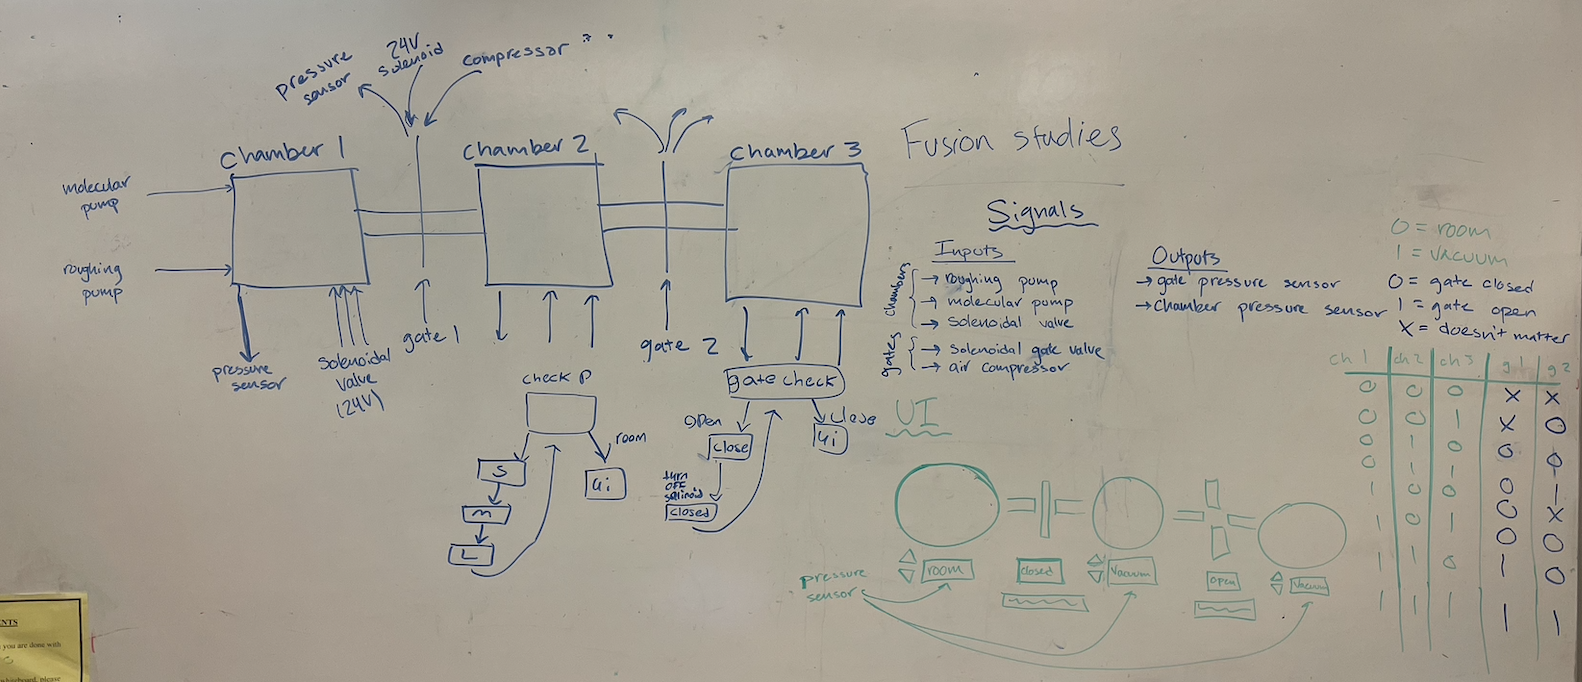 pressure
sensor
24V
solenoid
compressor
chamber 1
chamber 2
chamber 3
molecular
pump
roughing
pump
pressure
sensor
solenoidal
valve
(24V)
gate 1
gate 2
check P
room
S
m
L
ui
gate check
open
close
turn
OFF
closed
ui
Fusion studies
Signals
Inputs
chambers
→ roughing pump
→ molecular pump
→ solenoidal valve
gates
→ solenoidal gate valve
→ air compressor
Outputs
→ gate pressure sensor
→ chamber pressure sensor
0 = room
1 = vacuum
0 = gate closed
1 = gate open
X = doesn't matter
ch 1 ch 2 ch 3 g 1 g 2
0 0 0 X X
0 0 1 X 0
0 1 0 0 0
0 1 1 0 1
1 0 0 0 X
1 0 1 0 0
1 1 0 1 0
1 1 1 1 1
UI
room
closed
vacuum
open
vacuum
pressure
sensor
NTS
you are done with
whiteboard, please